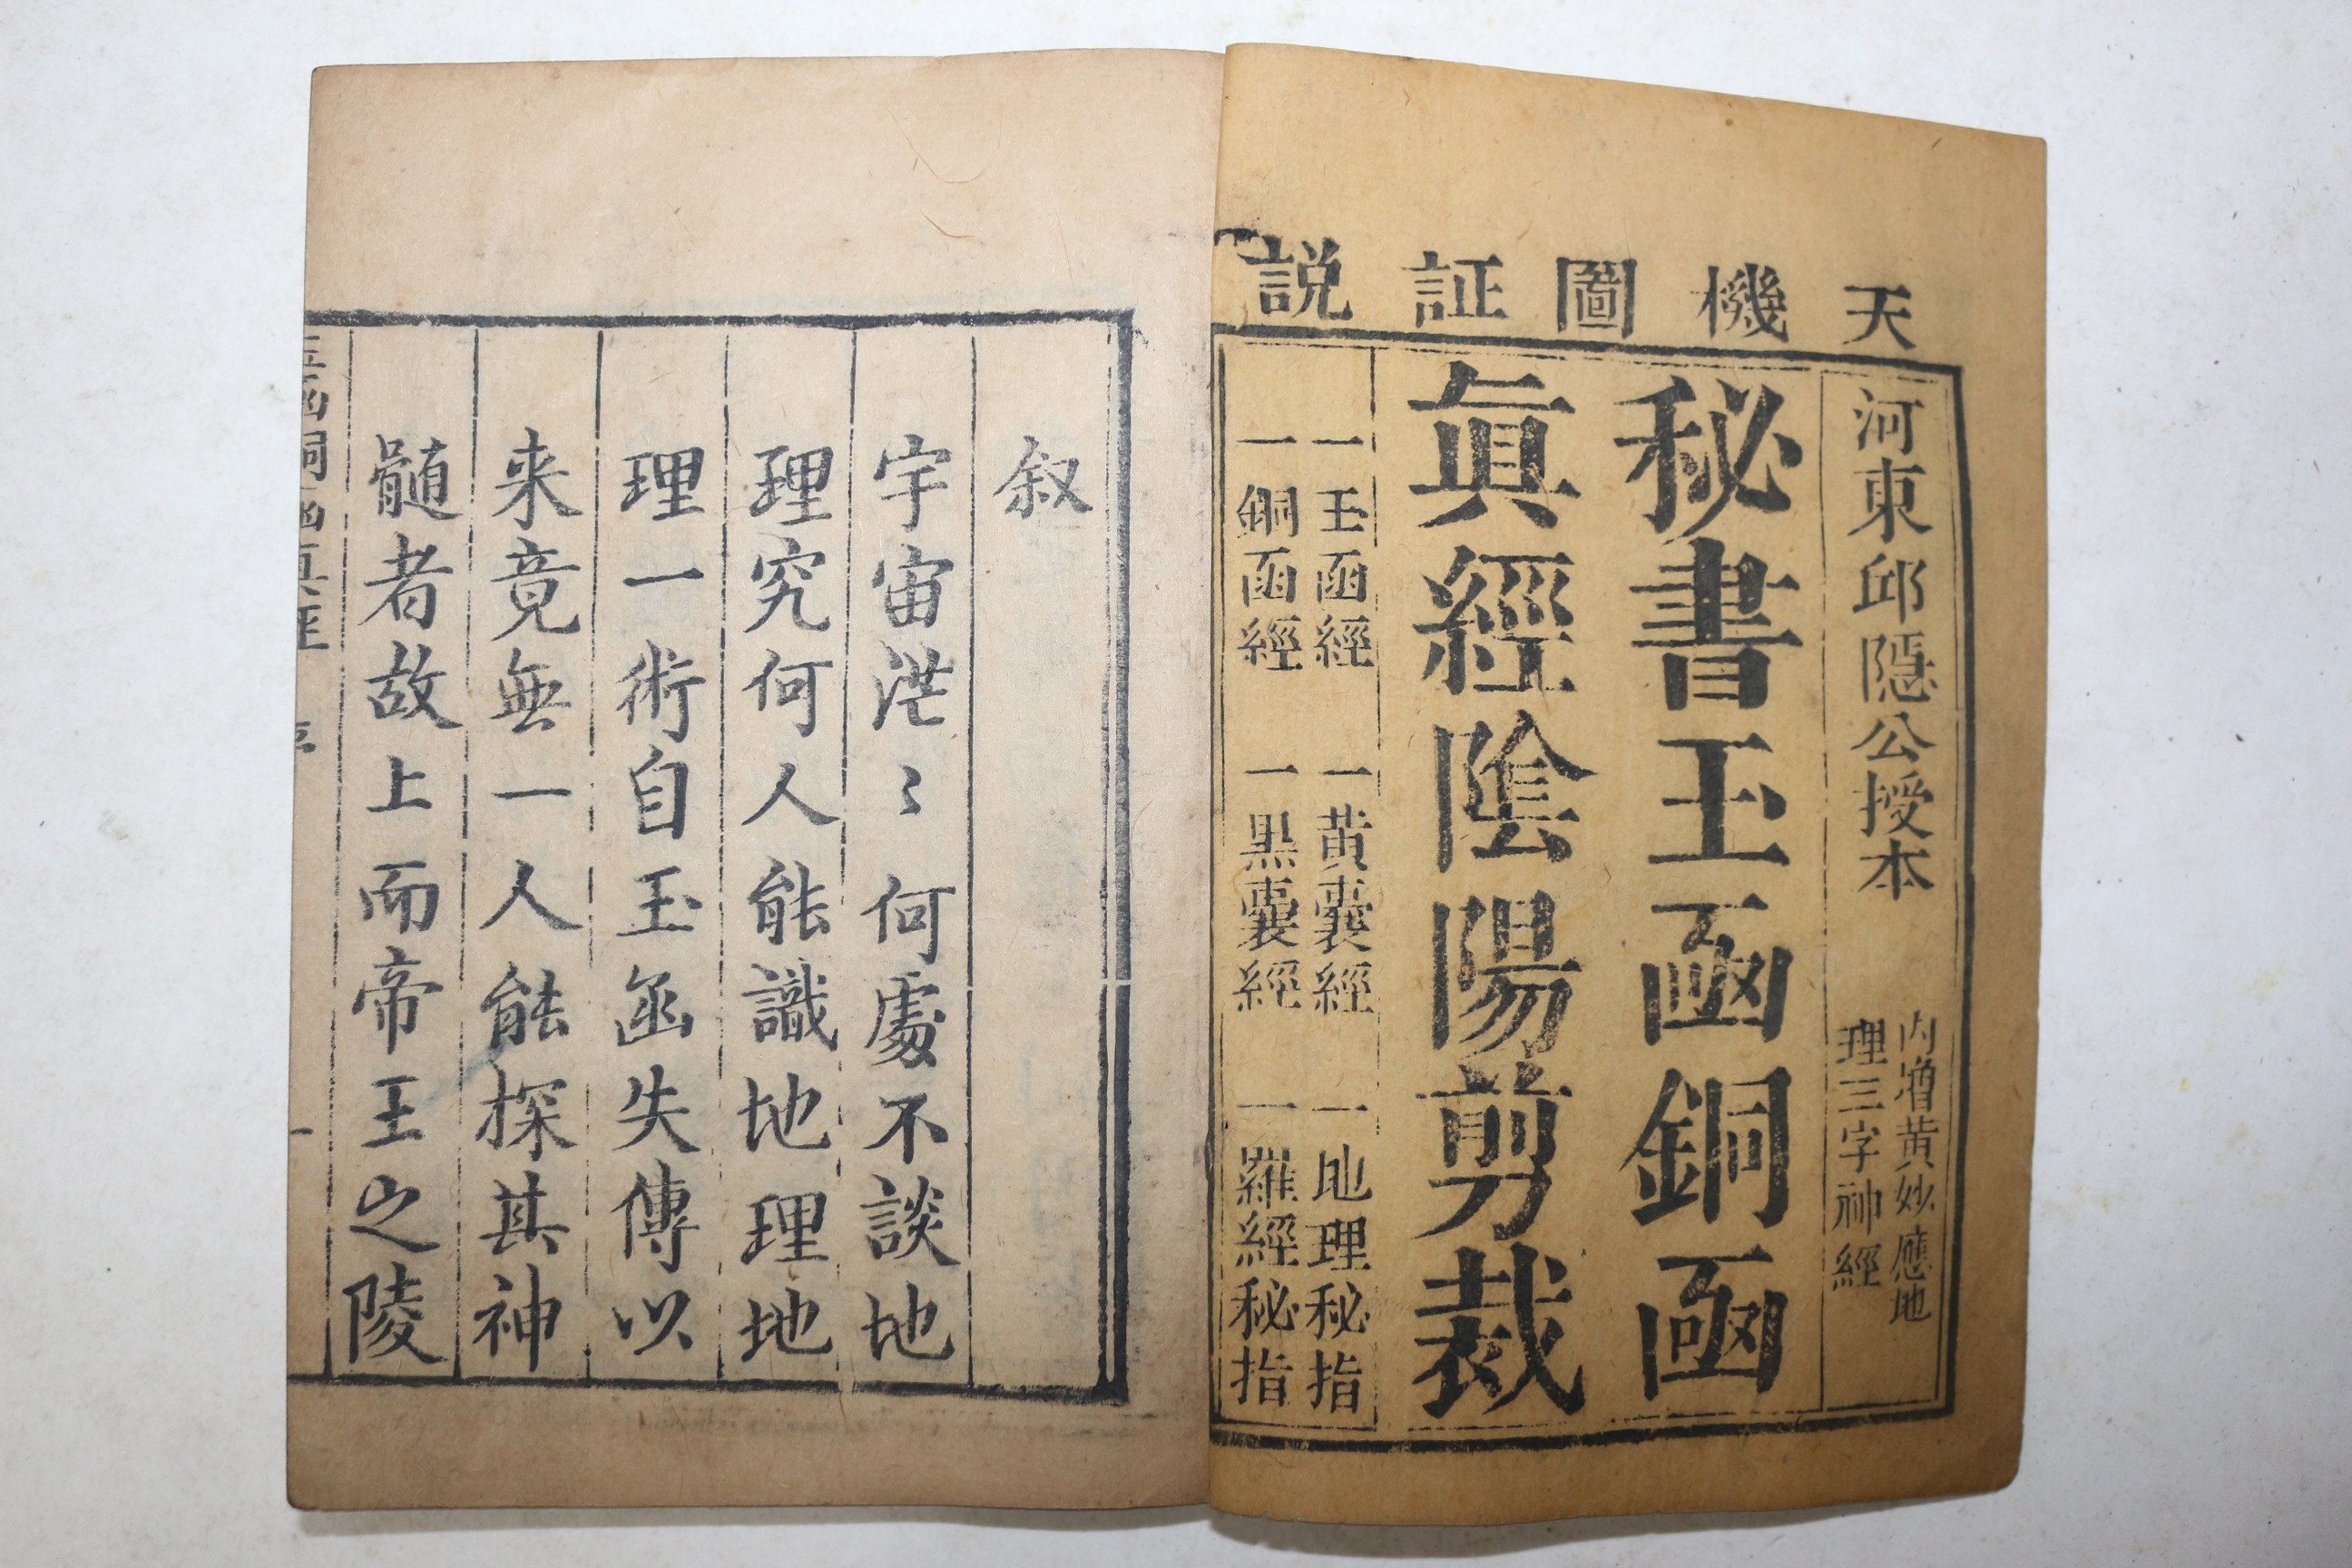 天機圖証説
河東邱隱公授本
內增黄妙應地
理三字神經
秘書玉函銅函
眞經陰陽剪裁
一玉函經 一黄囊經 一地理秘指
一銅函經 一黑囊經 一羅經秘指
叙
宇宙茫〻何處不談地
理究何人能識地理地
理一術自玉函失傳以
来竟無一人能探其神
髄者故上而帝王之陵
玉函銅函真經 序 一